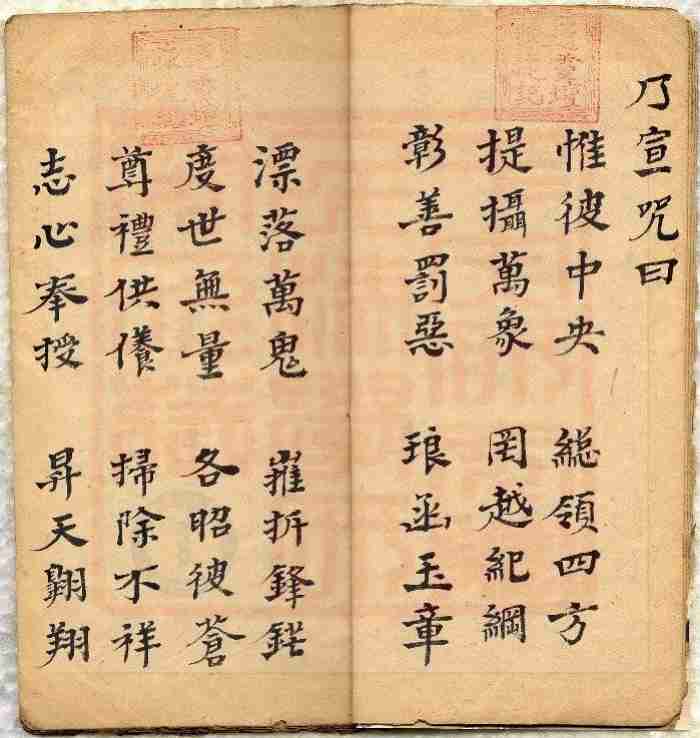 乃宣咒曰
惟彼中央 緫領四方
提攝萬象 罔越紀綱
彰善罰惡 琅函玉章
漂落萬鬼 摧折鋒鋩
度世無量 各昭彼蒼
尊禮供養 掃除不祥
志心奉授 昇天翺翔